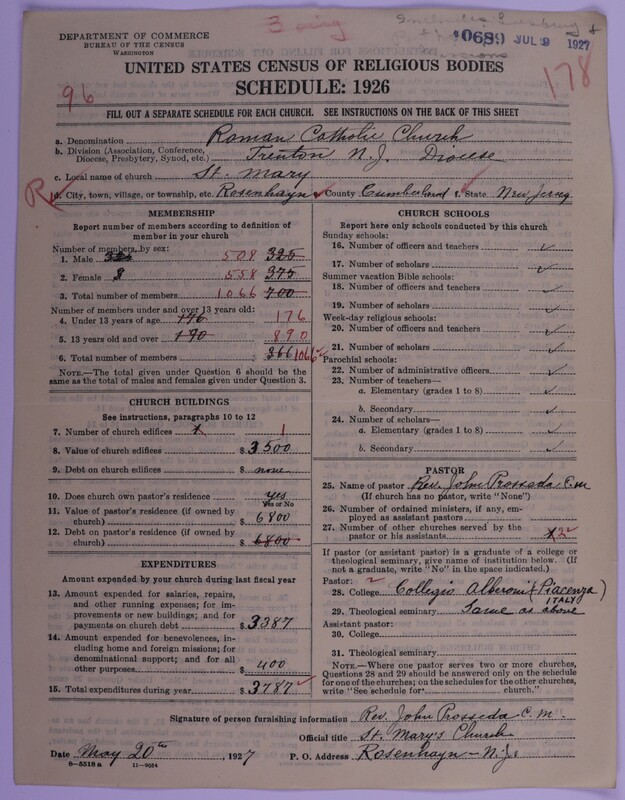 3
DEPARTMENT OF COMMERCE
BUREAU OF THE CENSUS
WASHINGTON
10689 JUL 9 1927
178
UNITED STATES CENSUS OF RELIGIOUS BODIES
SCHEDULE: 1926
96
FILL OUT A SEPARATE SCHEDULE FOR EACH CHURCH. SEE INSTRUCTIONS ON THE BACK OF THIS SHEET
a. Denomination Roman Catholic Church
b. Division (Association, Conference,
Diocese, Presbytery, Synod, etc.) Trenton N.J. Diocese
c. Local name of church St. Mary
R
d. City, town, village, or township, etc. Rosenhayn e. County Cumberland f. State New Jersey
MEMBERSHIP
Report number of members according to definition of
member in your church
Number of members, by sex:
1. Male 325 508 325
2. Female 8 558 375
3. Total number of members 1066 700
Number of members under and over 13 years old:
4. Under 13 years of age 176 176
5. 13 years old and over 190 890
6. Total number of members 366 1066
NOTE.—The total given under Question 6 should be the
same as the total of males and females given under Question 3.
CHURCH BUILDINGS
See instructions, paragraphs 10 to 12
7. Number of church edifices 1 1
8. Value of church edifices $ 3500
9. Debt on church edifices $ none
10. Does church own pastor's residence yes
Yes or No
11. Value of pastor's residence (if owned by
church) $ 6800
12. Debt on pastor's residence (if owned by
church) $ 6800
EXPENDITURES
Amount expended by your church during last fiscal year
13. Amount expended for salaries, repairs,
and other running expenses; for im-
provements or new buildings; and for
payments on church debt $ 3387
14. Amount expended for benevolences, in-
cluding home and foreign missions; for
denominational support; and for all
other purposes $ 400
15. Total expenditures during year $ 3787
CHURCH SCHOOLS
Report here only schools conducted by this church
Sunday schools:
16. Number of officers and teachers
17. Number of scholars
Summer vacation Bible schools:
18. Number of officers and teachers
19. Number of scholars
Week-day religious schools:
20. Number of officers and teachers
21. Number of scholars
Parochial schools:
22. Number of administrative officers
23. Number of teachers—
a. Elementary (grades 1 to 8)
b. Secondary
24. Number of scholars—
a. Elementary (grades 1 to 8)
b. Secondary
PASTOR
25. Name of pastor Rev. John Prosseda C.M.
(If church has no pastor, write "None")
26. Number of ordained ministers, if any, em-
ployed as assistant pastors
27. Number of other churches served by the
pastor or his assistants
If pastor (or assistant pastor) is a graduate of a college or
theological seminary, give name of institution below. (If
not a graduate, write "No" in the space indicated.)
Pastor:
28. College Collegio Alberoni (Piacenza)
ITALY
29. Theological seminary Same as above
Assistant pastor:
30. College
31. Theological seminary
NOTE.—Where one pastor serves two or more churches,
Questions 28 and 29 should be answered only on the schedule
for one of the churches; on the schedules for the other churches,
write "See schedule for church."
Signature of person furnishing information Rev. John Prosseda C.M.
Official title St. Mary's Church
Date May 20th, 1927 P. O. Address Rosenhayn - N.J.
8-5518 a 11-9084